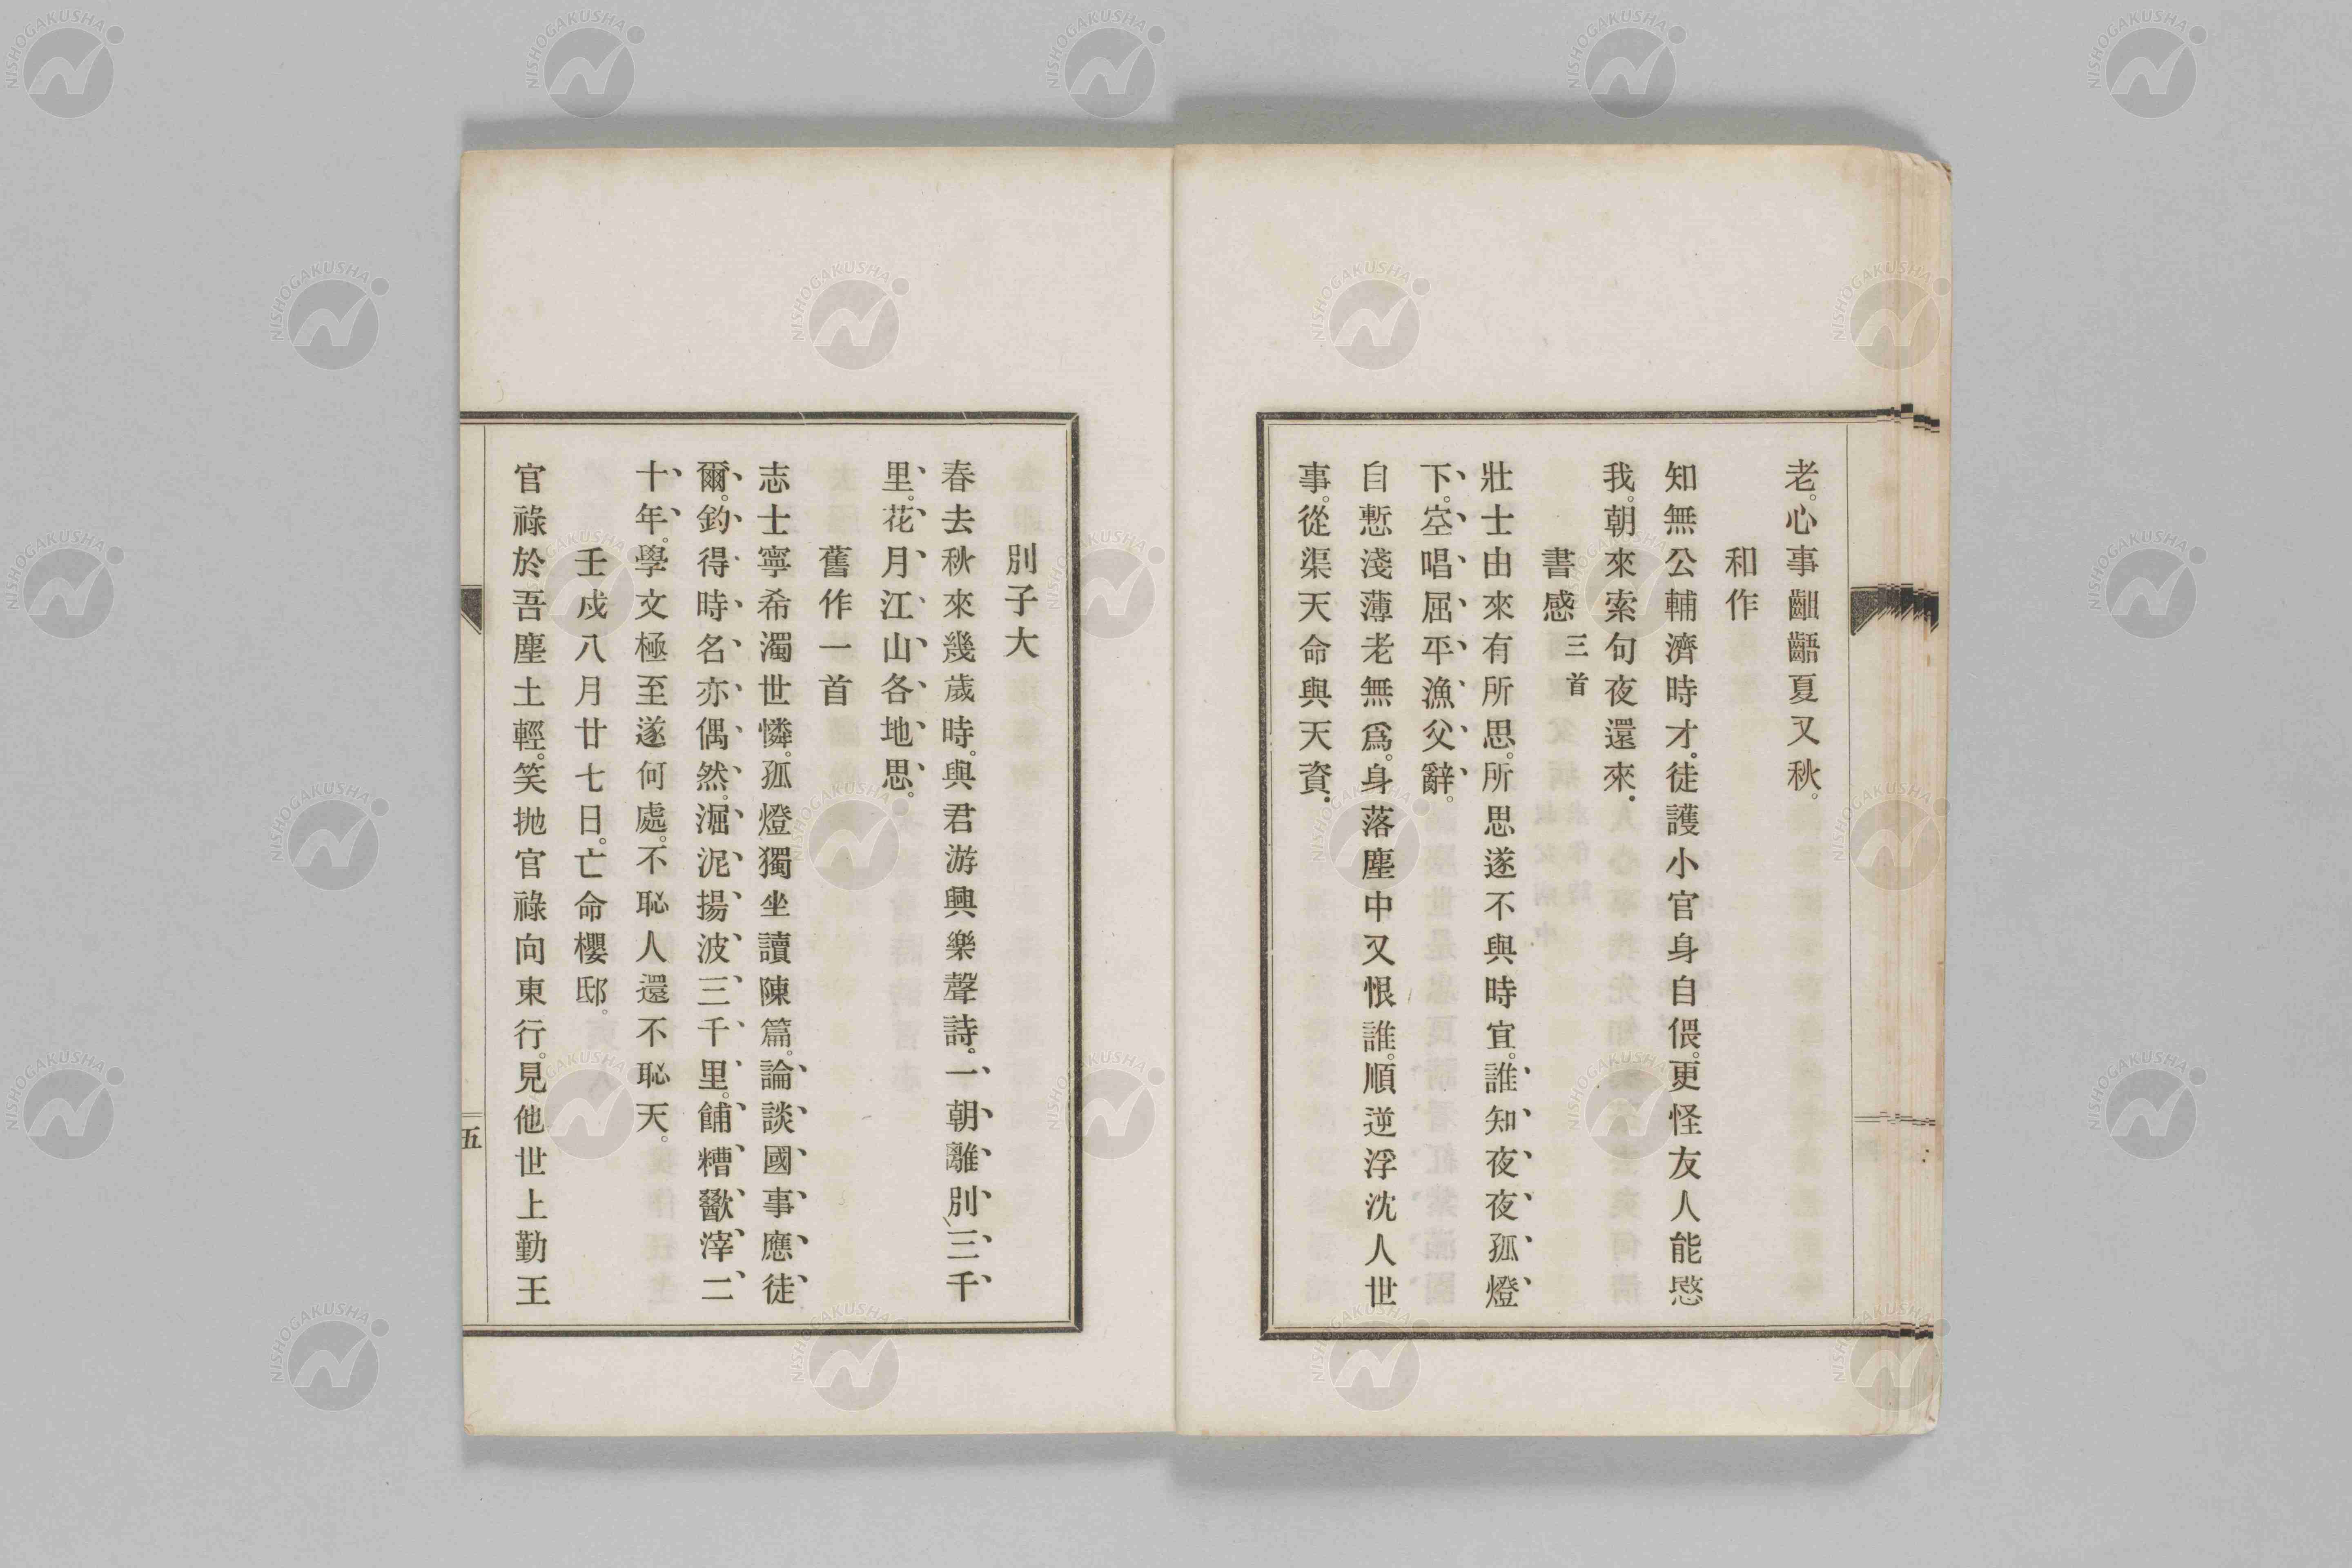 老。心事齟齬夏又秋。
和作
知無公輔濟時才。徒護小官身自偎。更怪友人能愍
我。朝來索句夜還來。
書感 三首
壯士由來有所思。所思遂不與時宜。誰知夜夜孤燈
下。空唱屈平漁父辭。
自慙淺薄老無爲。身落塵中又恨誰。順逆浮沈人世
事。從渠天命與天資。
別子大
春去秋來幾歲時。與君游興樂聲詩。一朝離別三千
里。花月江山各地思。
舊作一首
志士寧希濁世憐。孤燈獨坐讀陳篇。論談國事應徒
爾。釣得時名亦偶然。淈泥揚波三千里。餔糟歠滓二
十年。學文極至遂何處。不恥人還不恥天。
壬戌八月廿七日。亡命櫻邸。
官祿於吾塵土輕。笑抛官祿向東行。見他世上勤王
五
NISHOGAKUSHA